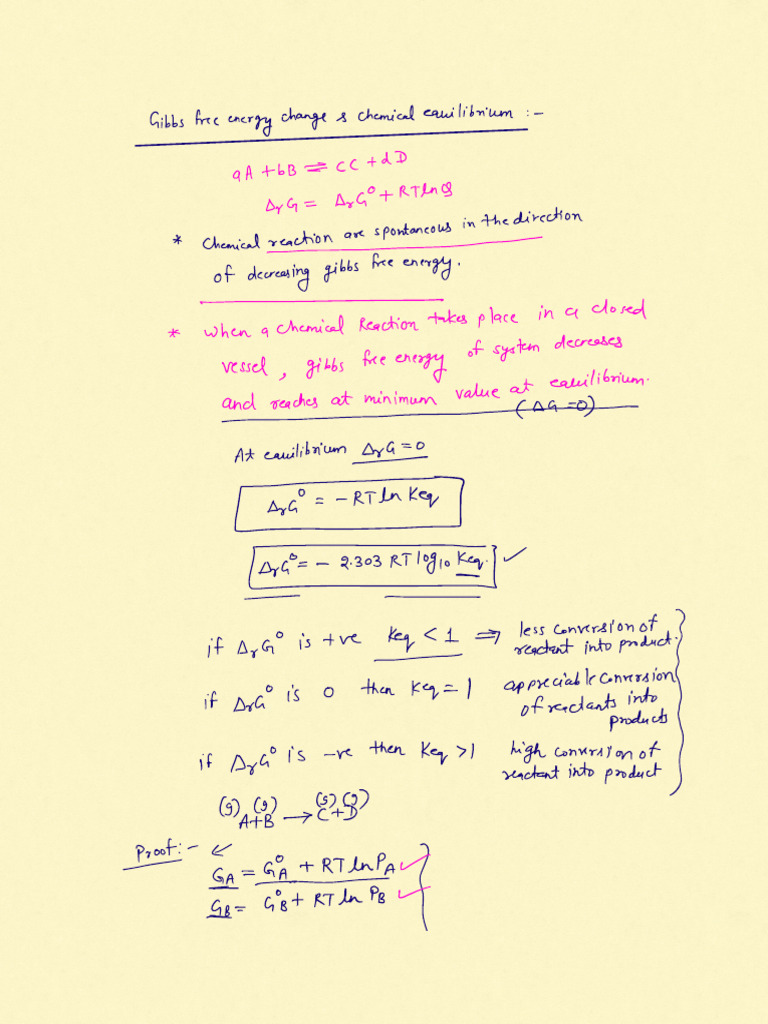 Gibbs free energy change & chemical equilibrium :-
aA + bB ⇌ CC + dD
ΔrG = ΔrG⁰ + RT ln Q
* Chemical reaction are spontaneous in the direction
of decreasing gibbs free energy.
* When a chemical Reaction takes place in a closed
vessel, gibbs free energy of system decreases
and reaches at minimum value at equilibrium.
(ΔG = 0)
At equilibrium ΔrG = 0
ΔrG⁰ = - RT ln Keq
ΔrG⁰ = - 2.303 RT log₁₀ Keq. ✓
if ΔrG⁰ is +ve Keq < 1 ⇒ less conversion of
reactant into product.
if ΔrG⁰ is 0 then Keq = 1 appreciable conversion
of reactants into
products
if ΔrG⁰ is -ve then Keq > 1 high conversion of
reactant into product
(g) (g) (g) (g)
A+B → C+D
Proof:- ↙
G_A = G⁰_A + RT ln P_A ✓
G_B = G⁰_B + RT ln P_B ✓